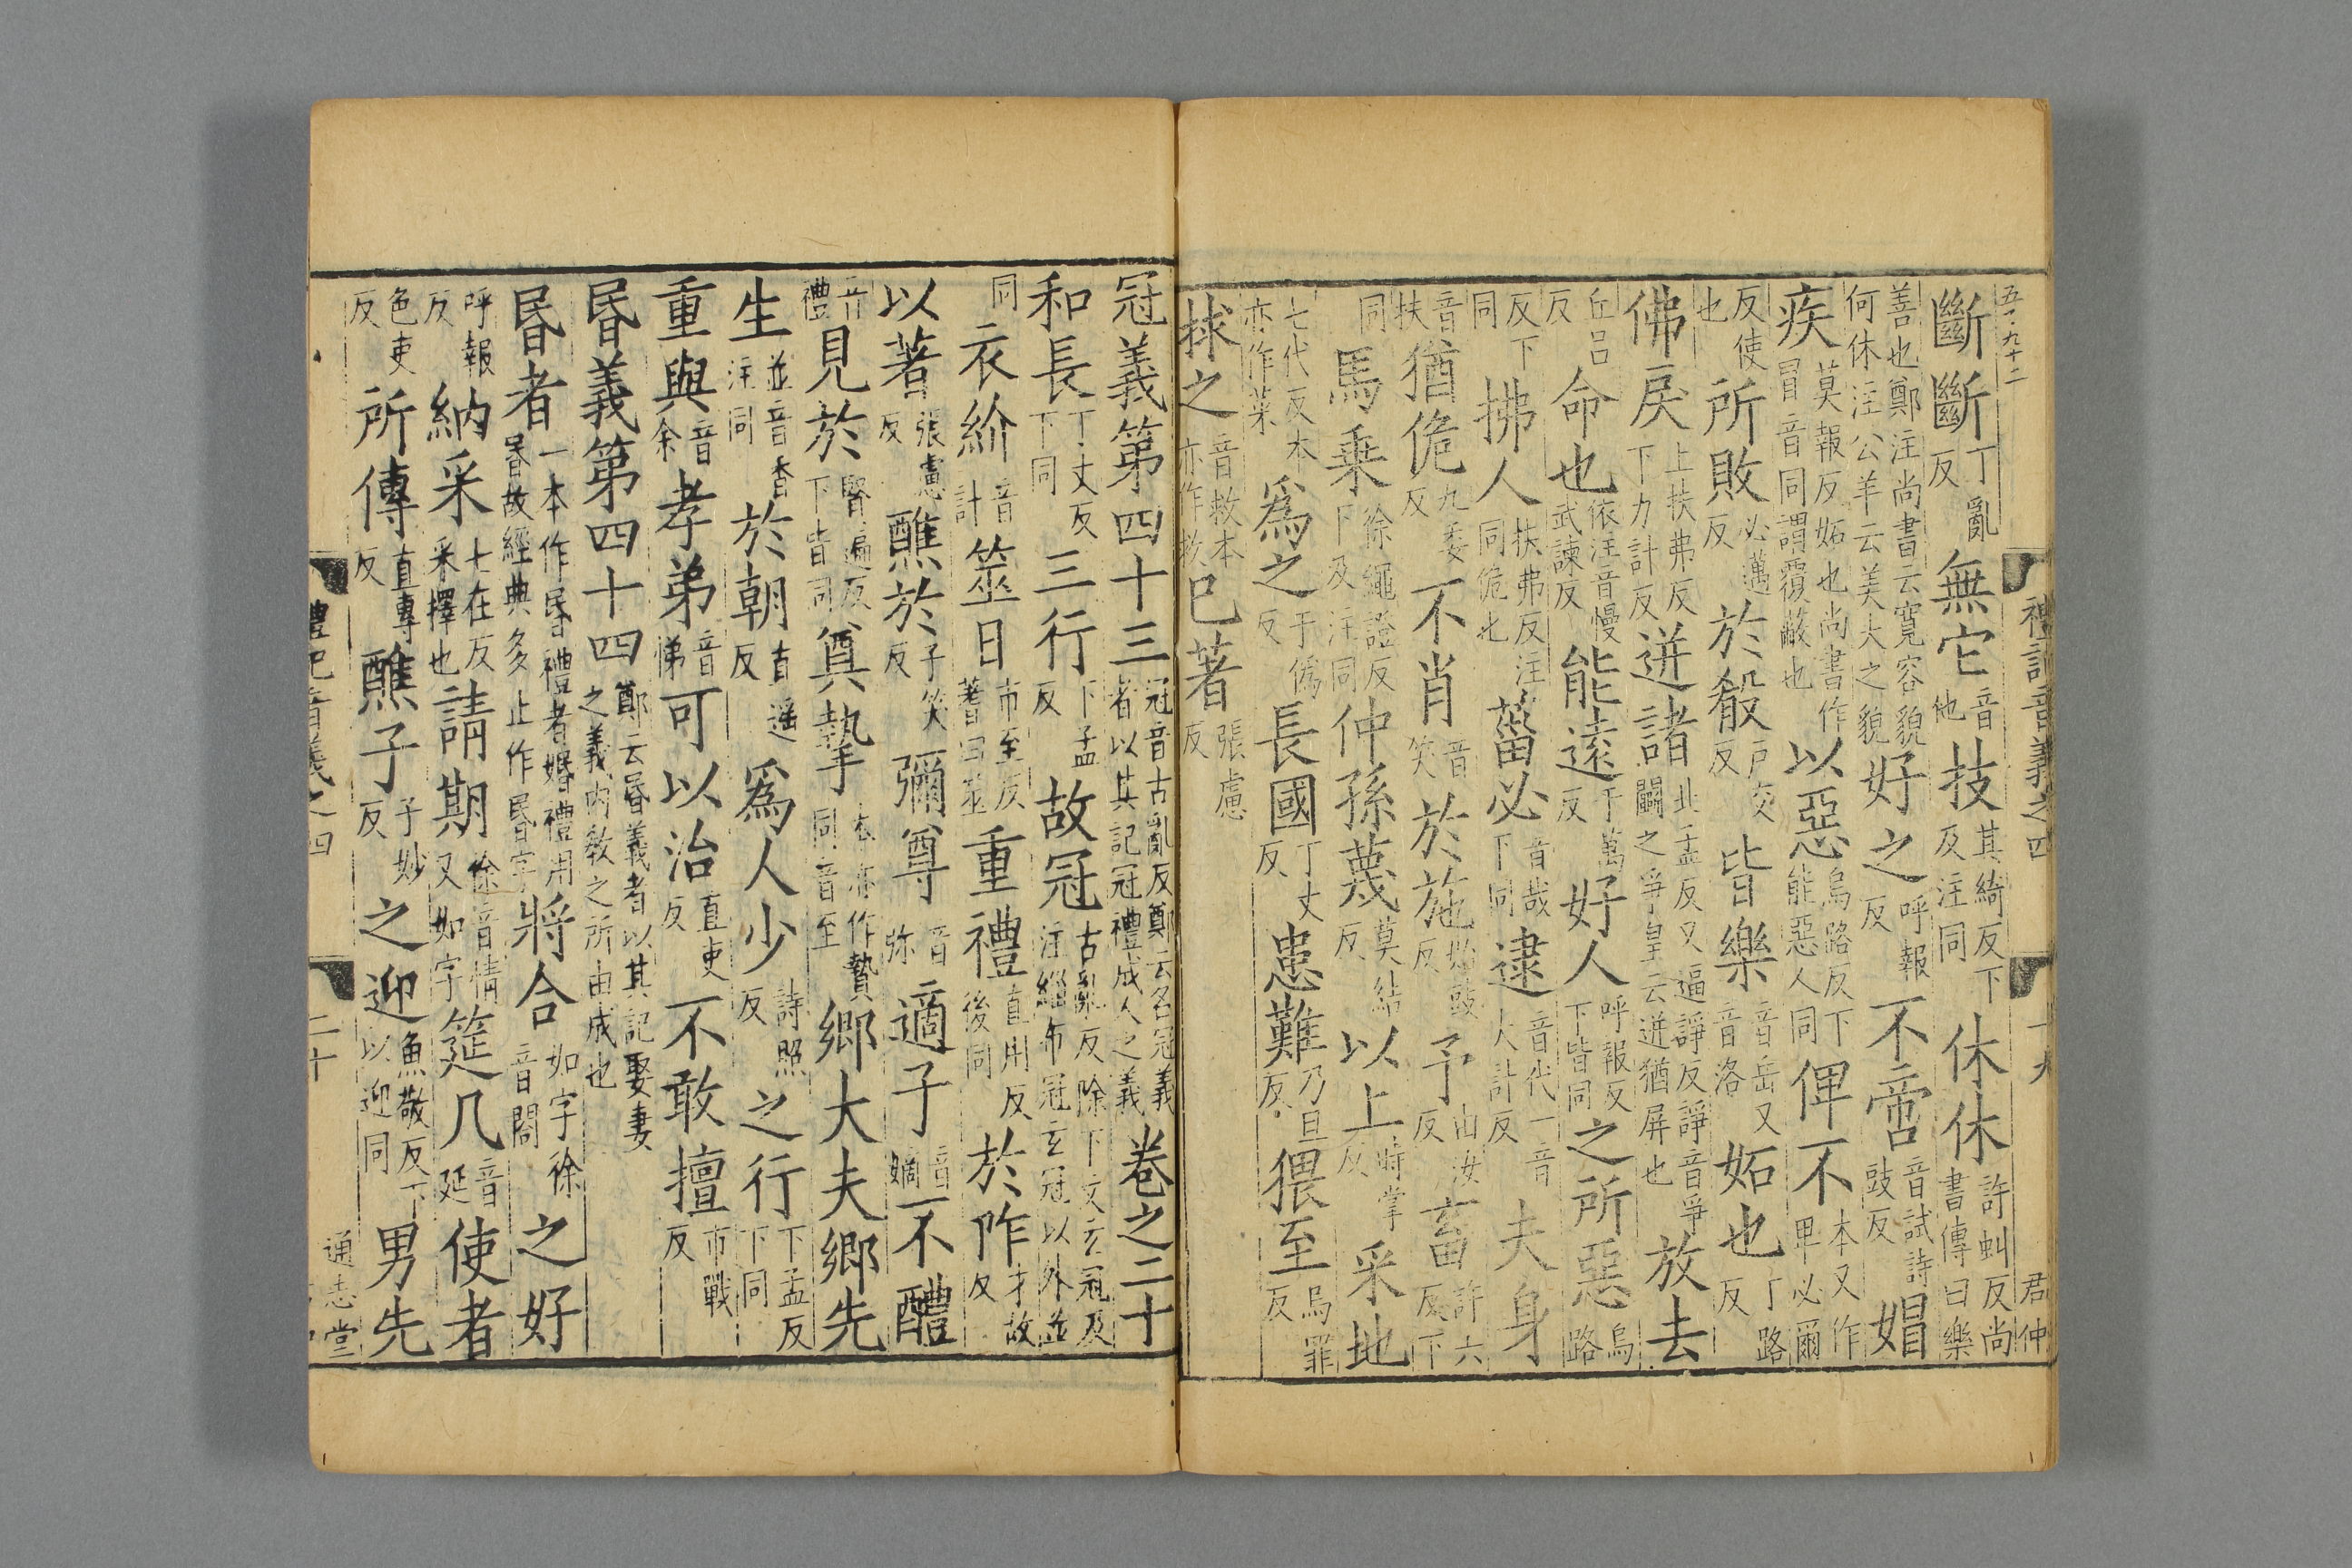 五丶九十二
禮記音義之四 十九 君仲
斷斷丁亂反無它音他技其綺反下及注同休休許虯反尚書傳曰樂
善也鄭注尚書云寬容貌何休注公羊云美大之貌好之呼報反不啻音試詩豉反媢
疾莫報反妬也尚書作冒音同謂覆蔽也以惡烏路反下能惡人同俾不本又作卑必爾
反使也所敗必邁反於殽戶交反皆樂音岳又音洛妬也丁路反
佛戾上扶弗反下力計反迸諸北孟反又逼諍反諍音爭鬭之爭皇云迸猶屏也放去
丘呂反命也依注音慢武諫反能遠于萬反好人呼報反下皆同之所惡烏路
反下同拂人扶弗反注同佹也菑必音哉下同逮音代一音大計反夫身
音扶猶佹九委反不肖音笑於施始豉反予由汝反畜許六反下
同馬乘徐繩證反下及注同仲孫蔑莫結反以上時掌反采地
七代反本亦作菜爲之于僞反長國丁丈反患難乃旦反猥至烏罪反
捄之音救本亦作救已著張慮反
冠義第四十三冠音古亂反鄭云名冠義者以其記冠禮成人之義卷之二十
和長丁丈反下同三行下孟反故冠古亂反除下文玄冠及注緇布冠玄冠以外並
同衣紒音計筮日市至反蓍曰筮重禮直用反後同於阼才故反
以著張慮反醮於子笑反彌尊音弥適子音嫡不醴
音禮見於賢遍反下皆同奠摯本亦作贄同音至鄉大夫鄉先
生並音香注同於朝直遥反爲人少詩照反之行下孟反下同
重與音余孝弟音悌可以治直吏反不敢擅市戰反
昬義第四十四鄭云昬義者以其記娶妻之義內教之所由成也
昬者一本作昬禮者婚禮用昬故經典多止作昬字將合如字徐音閤之好
呼報反納采七在反采擇也請期徐音情又如字筵几音延使者
色吏反所傳直專反醮子子妙反之迎魚敬反下以迎同男先
禮記音義之四 二十 通志堂